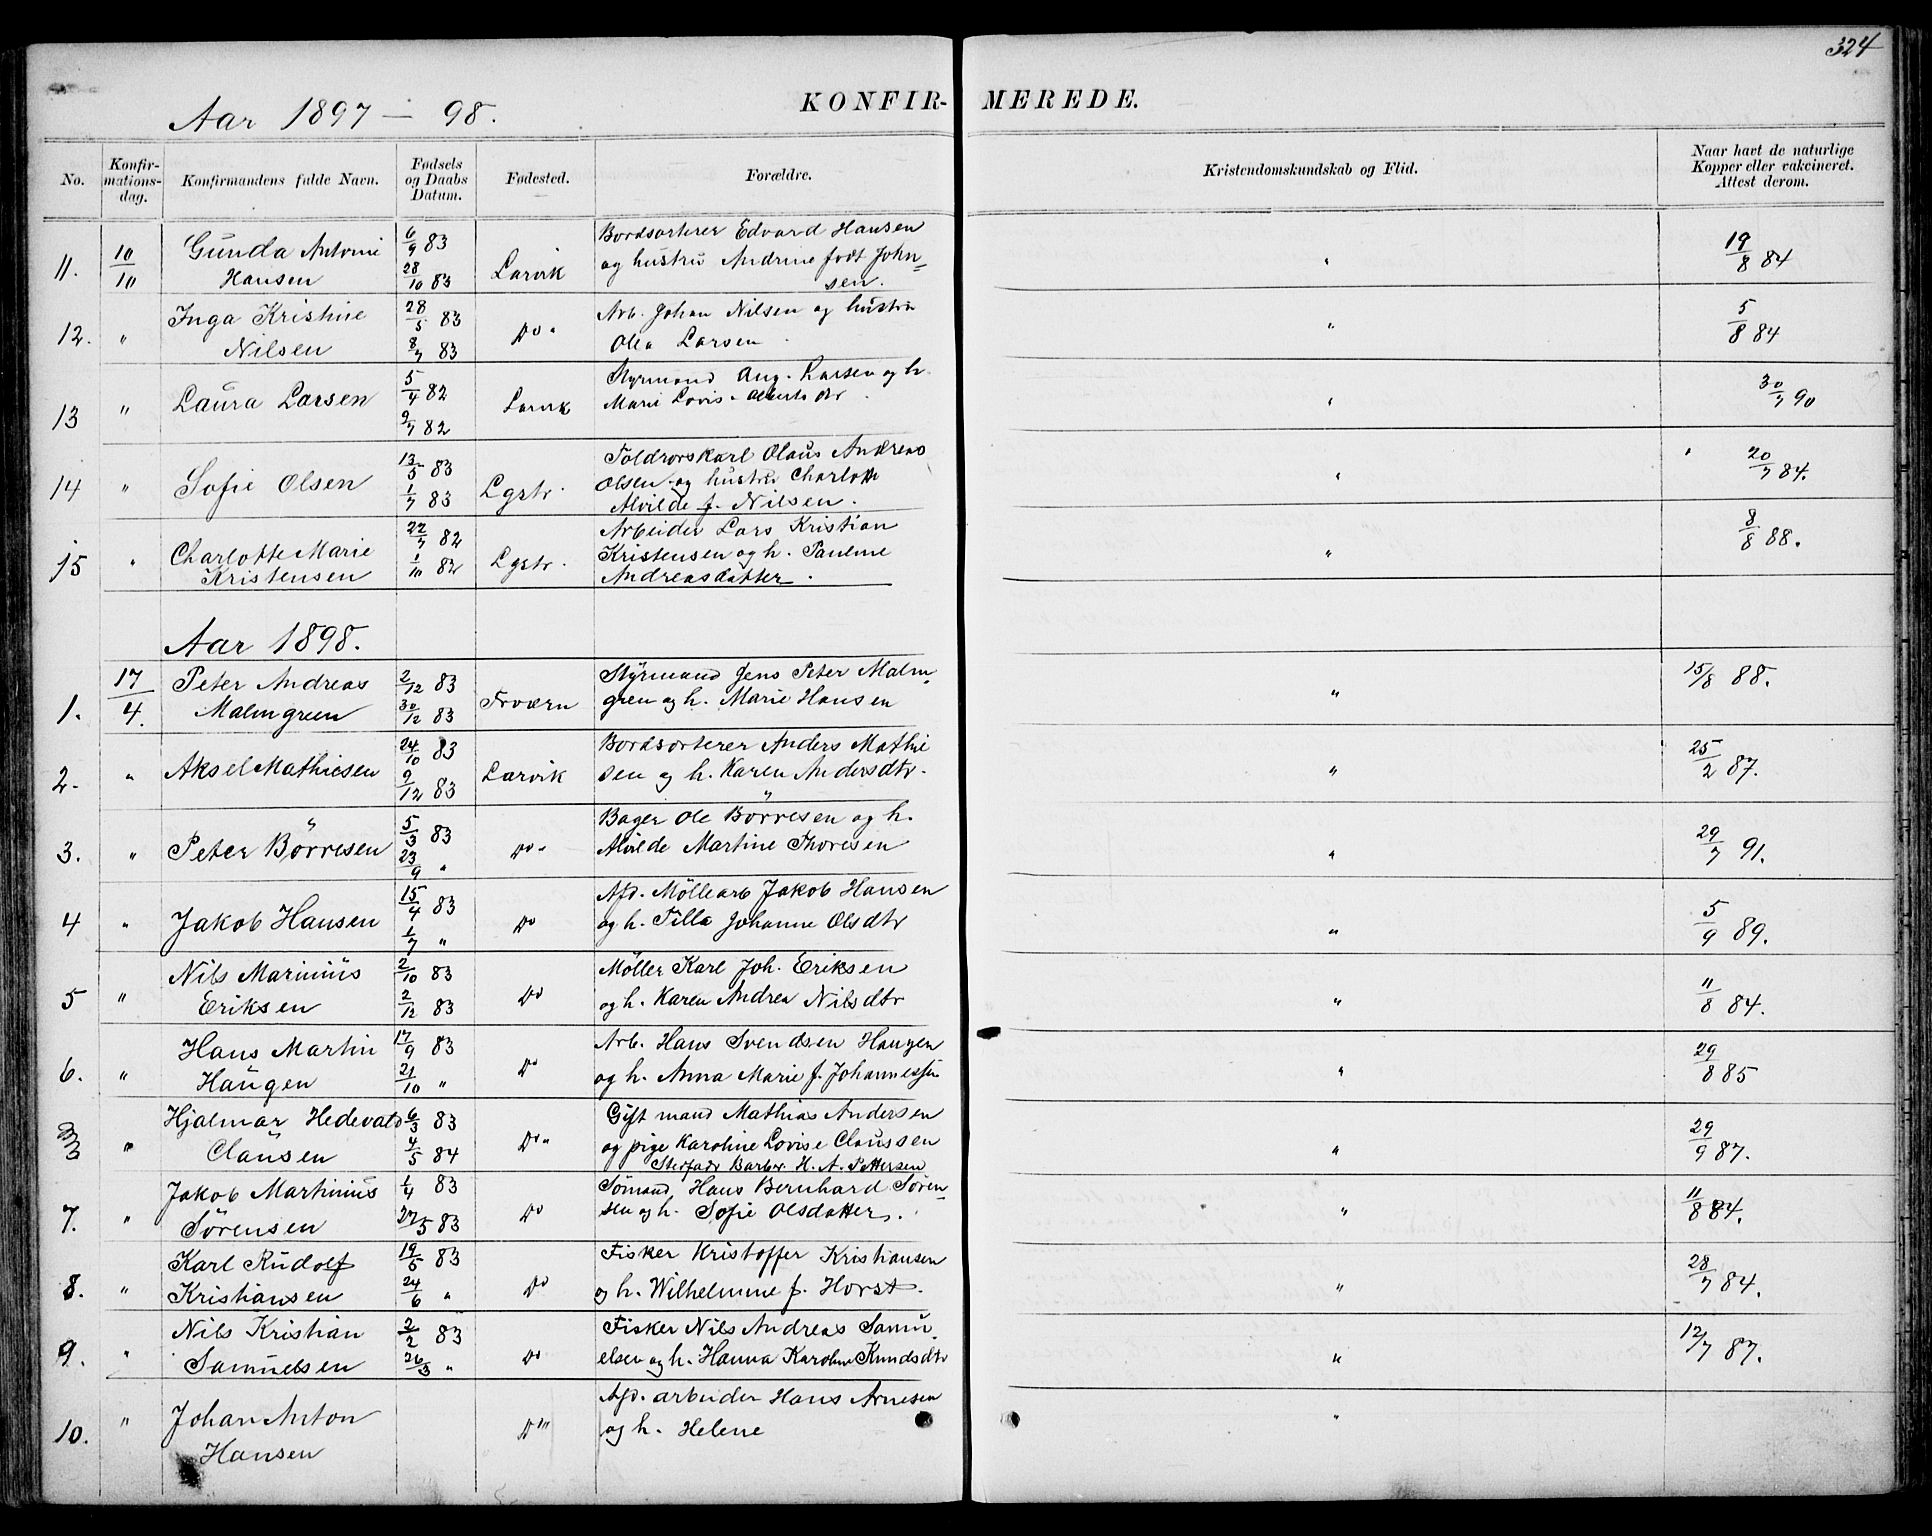 324
Aar 1897 — 98.
KONFIR- MEREDE.
No. Konfir-mations-dag. Konfirmandens fulde Navn. Fødsels og Daabs Datum. Fødested. Forældre. Kristendomskundskab og Flid. Naar havt de naturlige Kopper eller vakcineret. Attest derom.
11. 10/10 Gunda Antonie 6/9 83 Larvik Bordsorterer Edvard Hansen " 19/8 84
Hansen 28/10 83 og hustru Andrine født John=
sen.
12. " Inga Kristine 28/5 83 Do " Arb. Johan Nilsen og hustru " 5/8 84
Nilsen 8/7 83 Olea Larsen
13 " Laura Larsen 5/4 82 Larvik Styrmand Aug. Larsen og h. " 30/7 90
9/7 82 Marie Lovis. Albertsdtr
14 " Sofie Olsen 13/5 83 Lgstr. Toldrorskarl Olaus Andreas " 20/7 84.
1/7 83 Olsen og hustru Charlotte
Alvilde f. Nilsen.
15 " Charlotte Marie 22/7 82 Lgstr. Arbeider Lars Kristian " 8/8 88.
Kristensen 1/10 82 Kristensen og h. Pauline
Andreasdatter.
Aar 1898.
1. 17/4. Peter Andreas 2/12 83 Frværn Styrmand Jens Peter Malm= " 15/8 88.
Malmgreen 30/12 83 gren og h. Marie Hansen
2. " Aksel Mathiesen 24/10 83 Larvik Bordsorterer Anders Mathie " 25/2 87.
9/12 83 sen og h. Karen Andersdtr.
3. " Peter Börresen 5/3 83 Do " Bager Ole Börresen og h. " 29/7 91.
23/9 " Alvilde Martine Thoresen
4 " Jakob Hansen 15/4 83 Do Afd. Möllearb Jakob Hansen " 5/9 89.
1/7 " og h. Tilla Johanne Olsdtr
5 " Nils Marinius 2/10 83 Do Møller Karl Joh. Eriksen " 11/8 84.
Eriksen 2/12 83 og h. Karen Andrea Nilsdtr
6. " Hans Martin 17/9 83 Do Arb. Hans Svendsen Haugen " 29/8 85
Haugen 21/10 " og h. Anna Marie f. Johannessen
" Hjalmar Hedevald 6/3 83 Do " Gift mand Mathias Andersen " 29/9 87.
Clausen 4/5 84 og pige Karoline Lovise Claussen
Stedfadr Barber H. A. Pettersen
7. " Jakob Martinius 1/4 83 Do Sømand Hans Bernhard Sören= " 11/8 84.
Sörensen 27/5 83 sen og h. Sofie Olsdatter.
8. " Karl Rudolf 19/5 83 Do Fisker Kristoffer Kristiansen " 28/7 84.
Kristiansen 24/6 " og h. Wilhelmine f. Horst.
9. " Nils Kristian 2/2 83 Do Fisker Nils Andreas Samu= " 12/7 87.
Samuelsen 26/3 " elsen og h. Hanna Karoline Knudsdtr
10. " Johan Anton Do Afd. arbeider Hans Arnesen "
Hansen og h. Helene